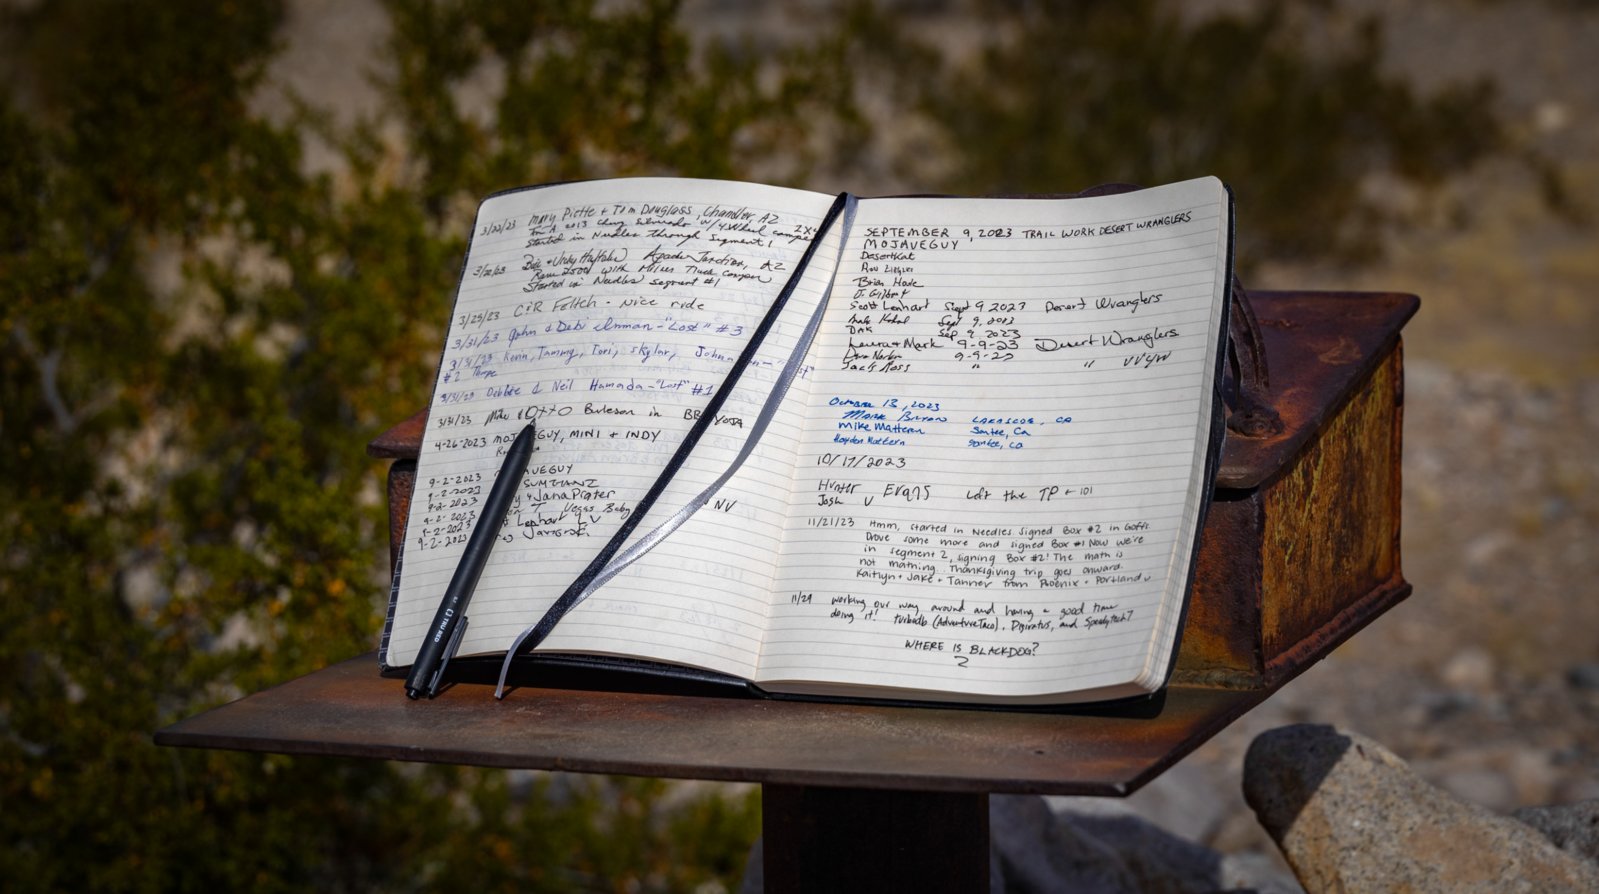 3/22/23 Mary Piette + Tom Douglass, Chandler, AZ
2013 Chevy Silverado w/ 4 Wheel camper
Started in Needles through Segment 1
Apache Junction, AZ
Ram 2500 with Truck camper
Started in Needles segment #1
3/25/23 C+R Feltch - Nice ride
3/31/23 John & Debi Inman - "Lost" #3
3/31/23 Kevin, Tammy, Tori, Skylar, John
#2
3/31/23 Debbie & Neil Hamada - "Lost" #1
3/31/23 Mike & Otto Burleson in
4-26-2023 GUY, MINI + INDY
9-2-2023 AVEGUY
9-2-2023 SUMTIANZ
9-2-2023 y & Jana Prater
9-2-2023 Vegas Baby NV
9-2-2023 Lephart LV
9-2-2023
TRU RED
SEPTEMBER 9, 2023 TRAIL WORK DESERT WRANGLERS
MOJAVEGUY
DesertKat
Brian Hode
J. Gilbert
Scott Lenhart Sept 9 2023 Desert Wranglers
Sept 9, 2023
DAK Sep 9, 2023
Laura & Mark 9-9-23 Desert Wranglers
9-9-23
Ross " " VVVW
October 13, 2023
Mark Bryan , CA
Mike Mattern Santee, Ca
Hayden Mattern Santee, Ca
10/17/2023
Hunter Evans Left the TP ← 101
Josh U
11/21/23 Hmm, started in Needles. Signed Box #2 in Goffs.
Drove some more and signed Box #1 Now we're
in segment 2, signing Box #2! The math is
not mathing. Thanksgiving trip goes onward.
Kaitlyn + Jake + Tanner from Phoenix + Portland
11/29 working our way around and having a good time
doing it! turbodb (AdventureTaco), Digiratus, and Speedytech7
WHERE IS BLACKDOG?
2